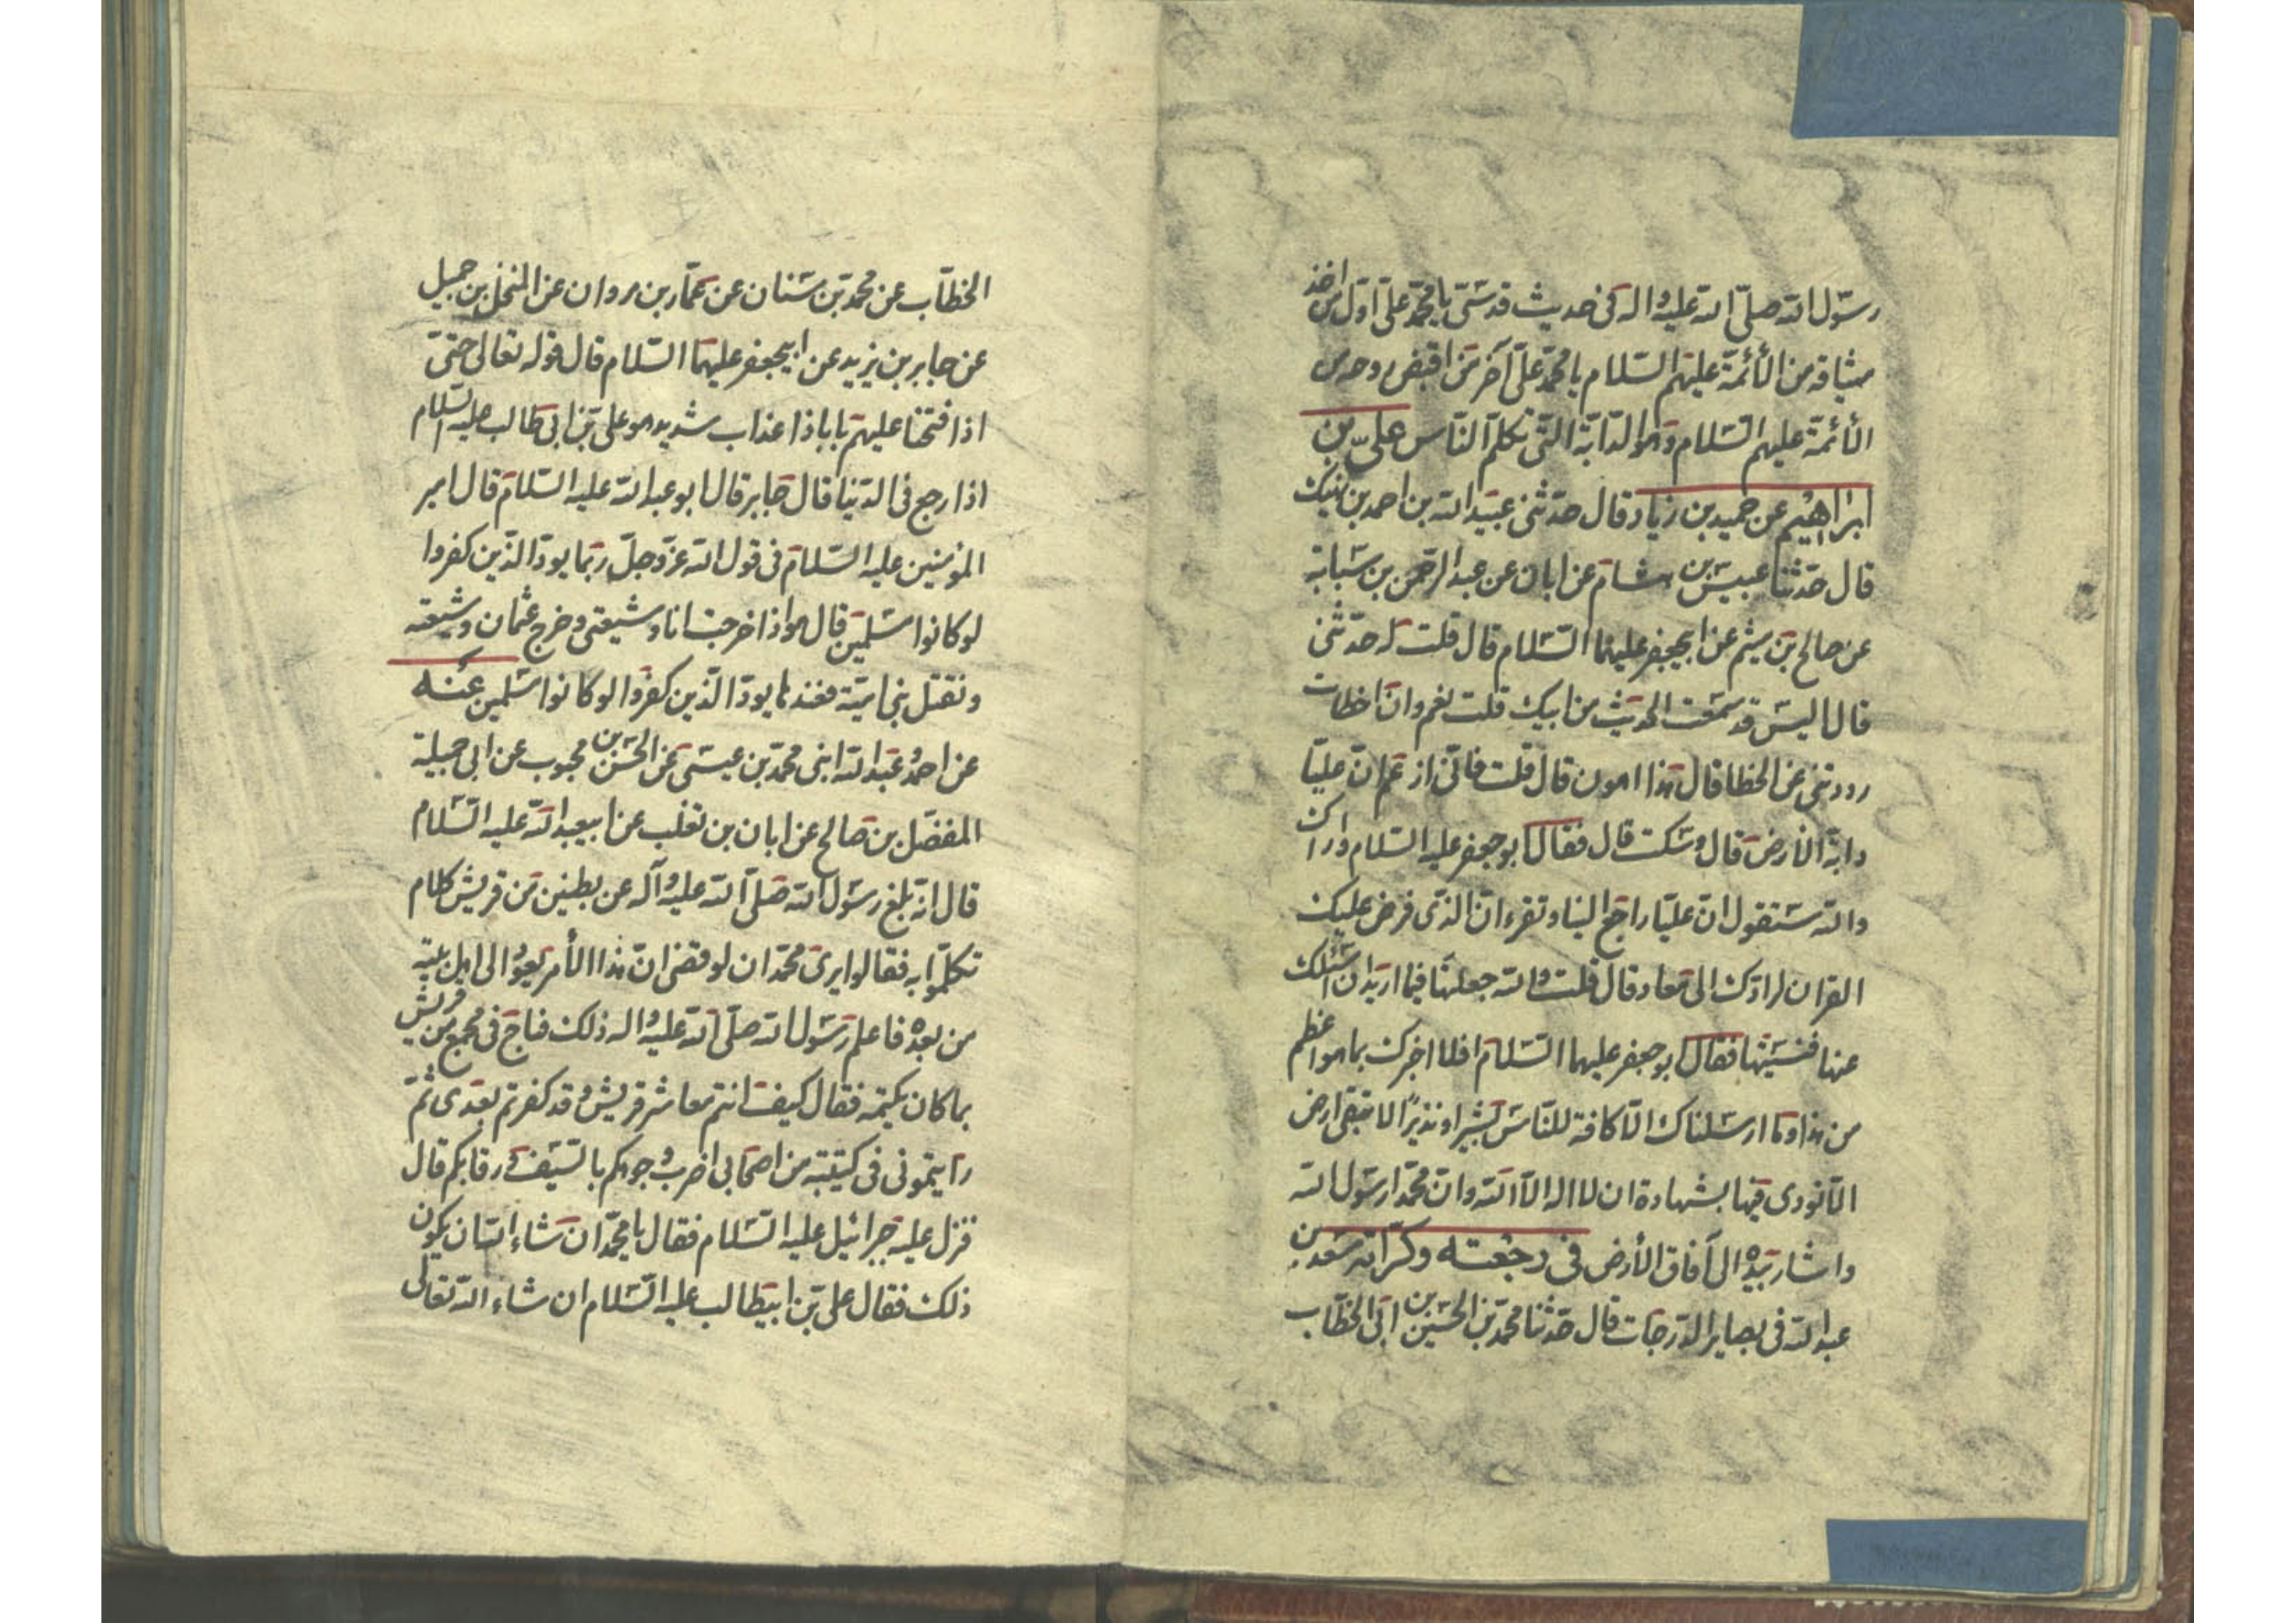 رسول الله صلى الله عليه واله فى حديث قدسى يا محمد على اول من اخذ
ميثاقه من الأئمة عليهم السلام يا محمد على آخر من اقبض روحه من
الأئمة عليهم السلام وهو الدابة التى تكلم الناس على بن
ابراهيم عن حميد بن زياد قال حدثنى عبيد الله بن احمد بن نهيك
قال حدثنا عبيس بن هشام عن ابان عن عبد الرحمن بن سيابة
عن صالح بن ميثم عن ابيجعفر عليهما السلام قال قلت له حدثنى
قال اليس قد سمعت الحديث من ابيك قلت نعم وان اخطات
رددتنى عن الخطا قال هذا اهون قال قلت فانى ازعم ان عليا
دابة الارض قال وسكت قال فقال ابو جعفر عليه السلام واراك
والله ستقول ان عليا راجع الينا وتقرء ان الذى فرض عليك
القران لرادك الى معاد قال قلت والله جعلتها فيما اريد ان اسئلك
عنها فنسيتها فقال ابو جعفر عليهما السلام افلا اخبرك بما هو اعظم
من هذا وما ارسلناك الا كافة للناس بشيرا ونذيرا لا تبقى ارض
الا نودى فيها بشهادة ان لا اله الا الله وان محمدا رسول الله
واشار بيده الى آفاق الأرض فى رجعته وكراته سعد بن
عبد الله فى بصاير الدرجات قال حدثنا محمد بن الحسين بن ابى الخطاب
الخطاب عن محمد بن سنان عن عمار بن مروان عن المنخل بن جميل
عن جابر بن يزيد عن ابيجعفر عليهما السلام قال قوله تعالى حتى
اذا فتحنا عليهم بابا ذا عذاب شديد هو على بن ابى طالب عليه السلام
اذا رجع فى الدنيا قال جابر قال ابو عبد الله عليه السلام قال امير
المؤمنين عليه السلام فى قول الله عز وجل ربما يود الذين كفروا
لو كانوا مسلمين قال هو اذا خرجت انا وشيعتى وخرج عثمان وشيعته
ونقتل بنى امية فعندها يود الذين كفروا لو كانوا مسلمين عنه
عن احمد وعبد الله ابنى محمد بن عيسى عن الحسن بن محبوب عن ابى جميلة
المفضل بن صالح عن ابان بن تغلب عن ابيعبد الله عليه السلام
قال انه بلغ رسول الله صلى الله عليه وآله عن بطنين من قريش كلام
تكلموا به فقالوا يرى محمد ان لو قضى ان هذا الأمر يعود الى اهل بيته
من بعده فاعلم رسول الله صلى الله عليه واله ذلك فباح فى مجمع من قريش
بما كان يكتمه فقال كيف انتم معاشر قريش وقد كفرتم بعدى ثم
رايتمونى فى كتيبة من اصحابى اضرب وجوهكم بالسيف ورقابكم قال
فنزل عليه جبرائيل عليه السلام فقال يا محمد ان شاء الله ان يكون
ذلك فقال على بن ابيطالب عليه السلام ان شاء الله تعالى